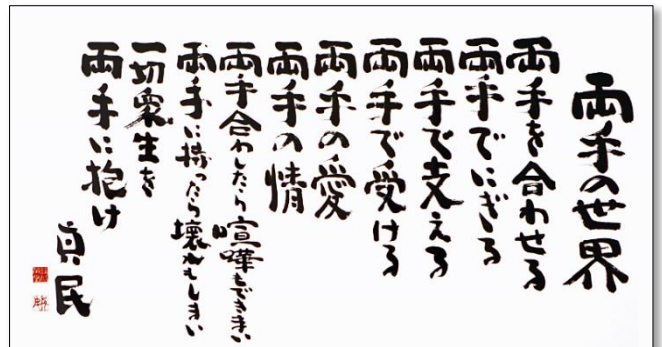 両手の世界
両手を合わせる
両手でにぎる
両手で支える
両手で受ける
両手の愛
両手の情
両手合わしたら喧嘩もできまい
両手に持ったら壊れもしまい
一切衆生を
両手に抱け
真民